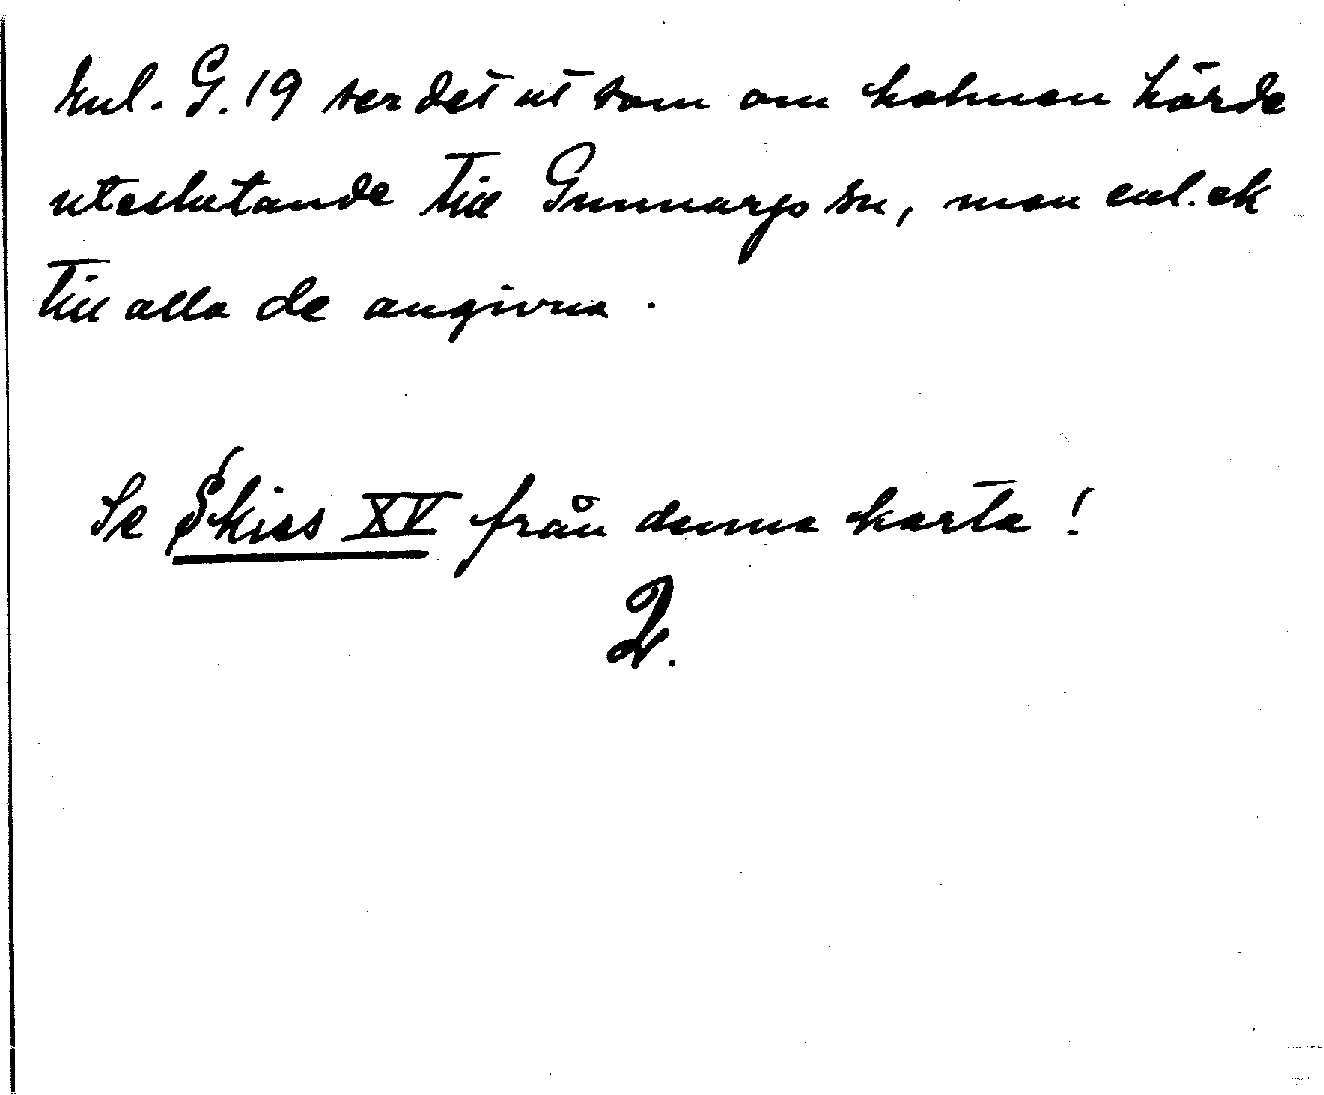 Enl. G. 19 ser det ut som om holmen hörde
uteslutande till Gunnarp su, men enl. ek
till alla de angivna.
Se Skiss XV från denna karta!
2.